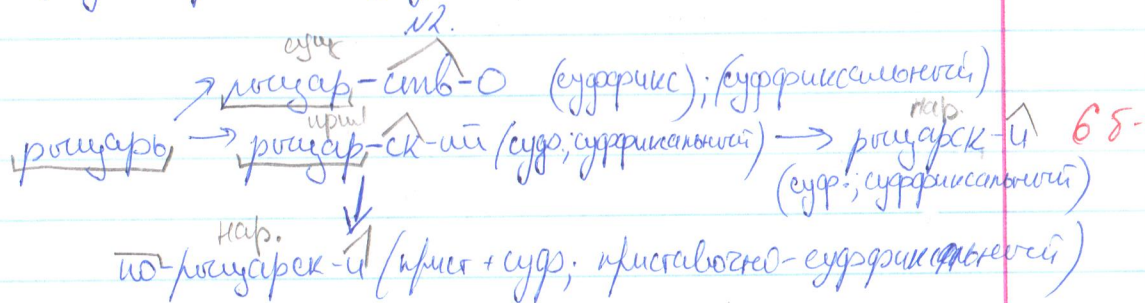 №2.
сущ
рыцар-ств-о (суффикс); (суффиксальный)
прил нар.
рыцарь → рыцар-ск-ий (суф.; суффиксальный) → рыцарск-и 6 б-
(суф.; суффиксальный)
нар.
по-рыцарск-и (прист + суф; приставочно-суффиксальный)